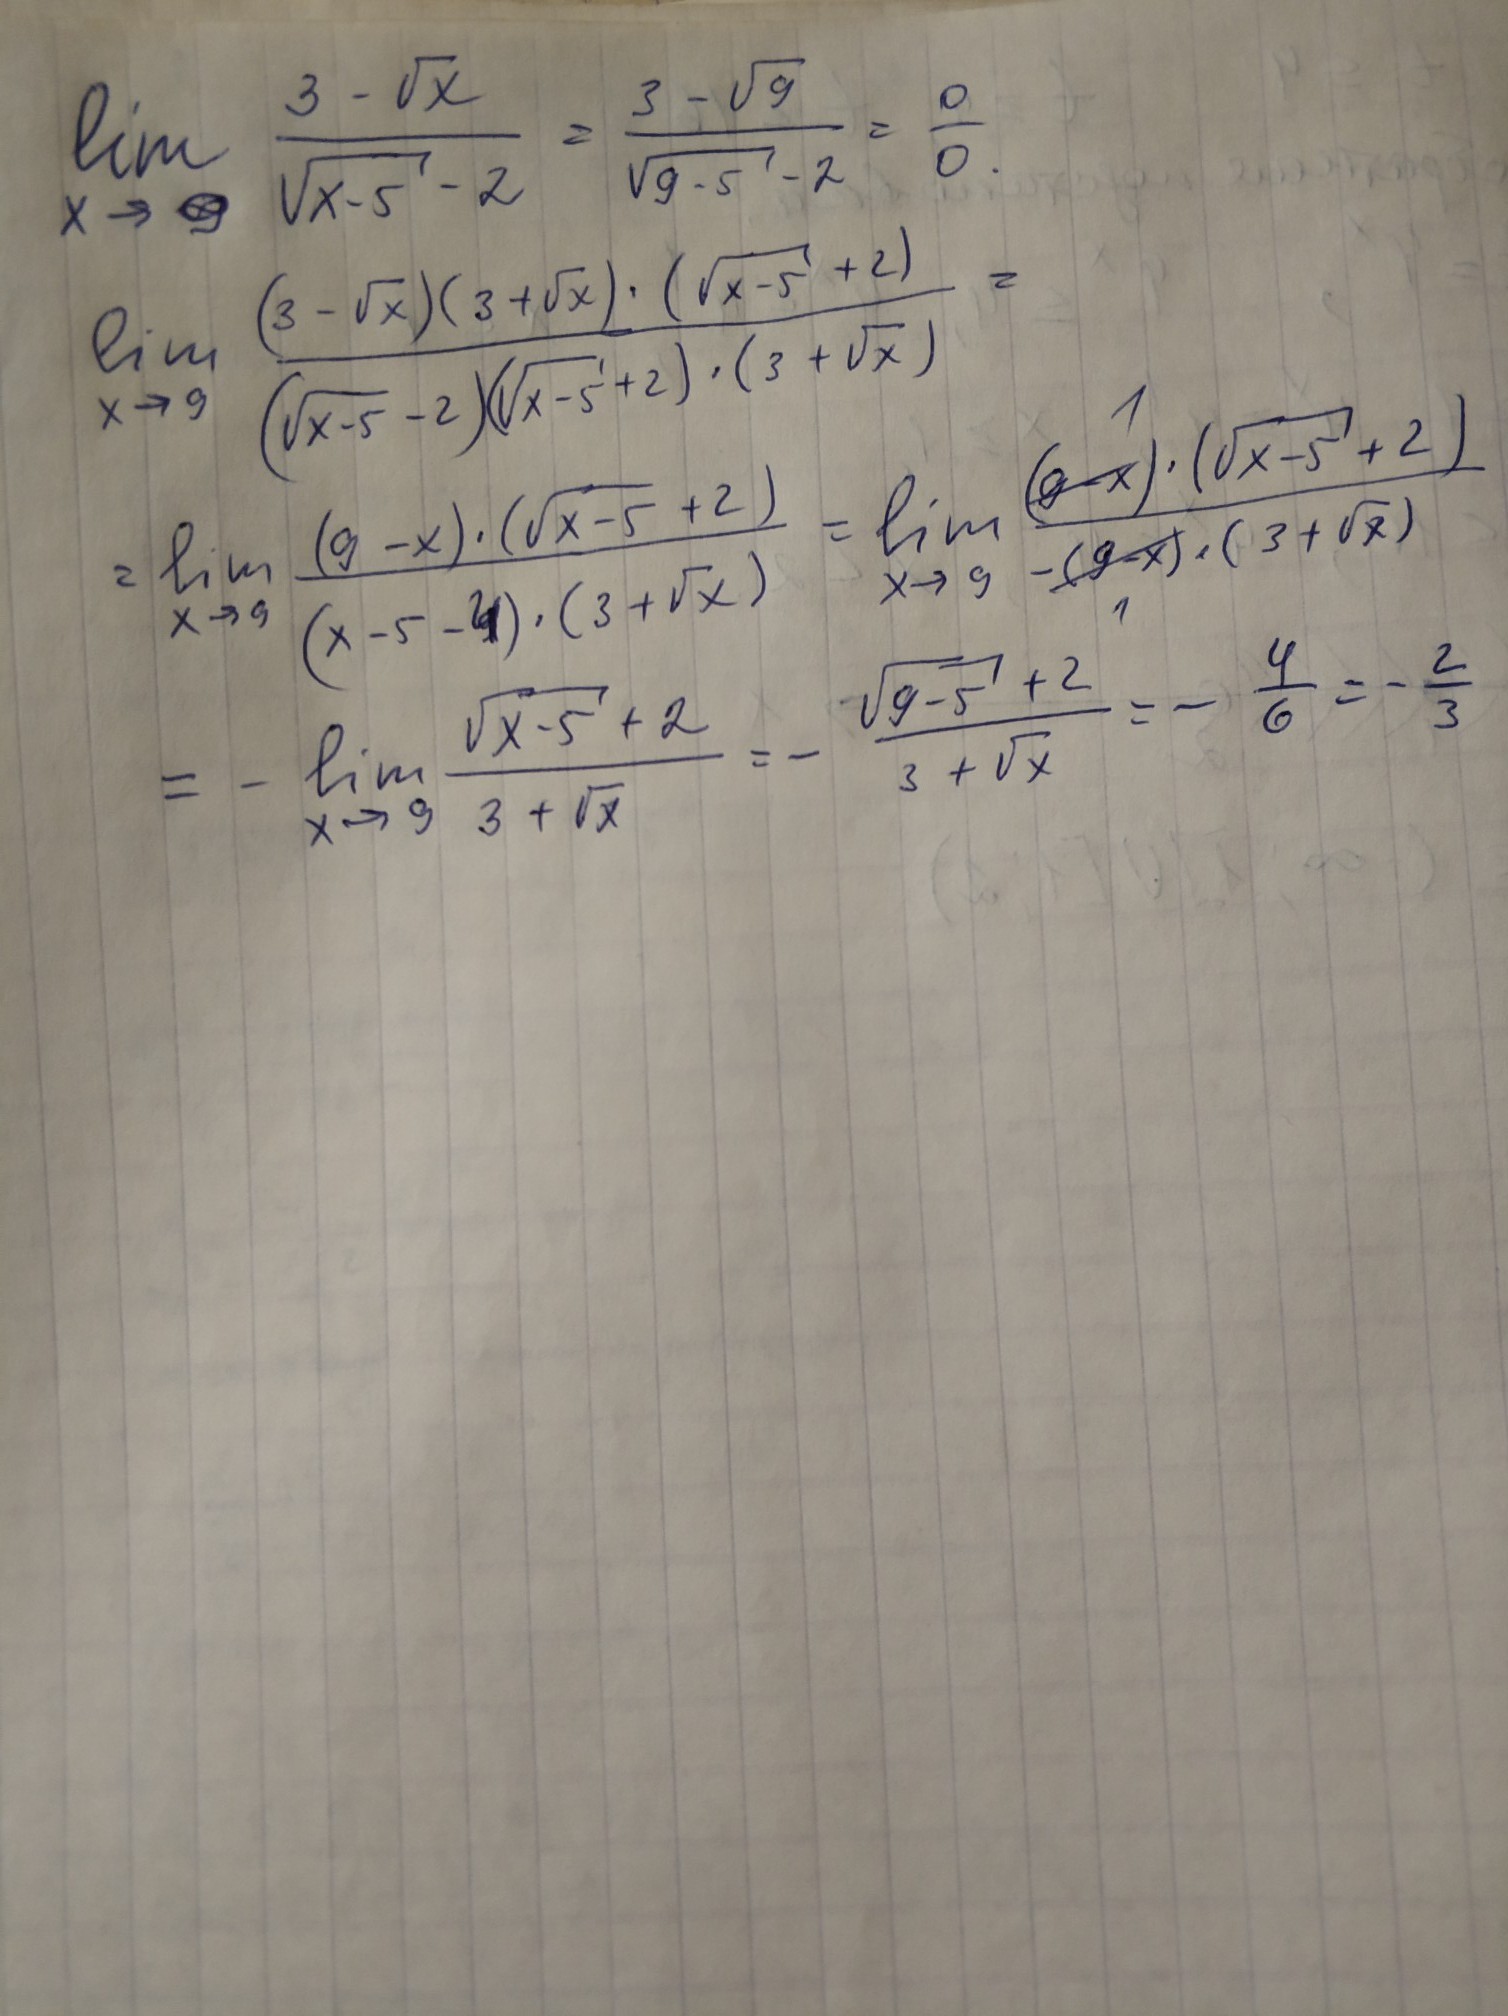 lim x→9 (3 - √x)/(√(x-5) - 2) = (3 - √9)/(√(9-5) - 2) = 0/0.
lim x→9 ((3 - √x)(3 + √x) · (√(x-5) + 2))/((√(x-5) - 2)(√(x-5) + 2) · (3 + √x)) =
= lim x→9 ((9 - x) · (√(x-5) + 2))/((x - 5 - 4) · (3 + √x)) = lim x→9 ((9-x) 1 · (√(x-5) + 2))/(-(9-x) 1 · (3 + √x))
= - lim x→9 (√(x-5) + 2)/(3 + √x) = - (√(9-5) + 2)/(3 + √x) = - 4/6 = - 2/3